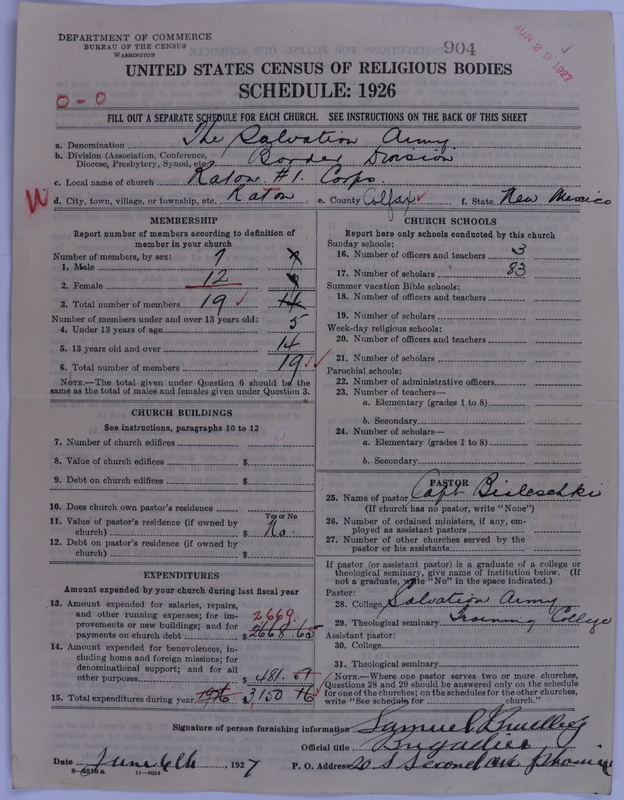 DEPARTMENT OF COMMERCE
BUREAU OF THE CENSUS
WASHINGTON
904
NOV 28 1927
UNITED STATES CENSUS OF RELIGIOUS BODIES
SCHEDULE: 1926
0-0
FILL OUT A SEPARATE SCHEDULE FOR EACH CHURCH. SEE INSTRUCTIONS ON THE BACK OF THIS SHEET
a. Denomination The Salvation Army
b. Division (Association, Conference, Diocese, Presbytery, Synod, etc. Border Division
c. Local name of church Raton #1. Corps.
W
d. City, town, village, or township, etc. Raton e. County Colfax f. State New Mexico
MEMBERSHIP
Report number of members according to definition of
member in your church
Number of members, by sex:
1. Male 7
2. Female 12
3. Total number of members 19 14
Number of members under and over 13 years old:
4. Under 13 years of age 5
5. 13 years old and over 14
6. Total number of members 19
NOTE.—The total given under Question 6 should be the
same as the total of males and females given under Question 3.
CHURCH BUILDINGS
See instructions, paragraphs 10 to 12
7. Number of church edifices
8. Value of church edifices $
9. Debt on church edifices $
10. Does church own pastor's residence
Yes or No
11. Value of pastor's residence (if owned by
church) $ No
12. Debt on pastor's residence (if owned by
church) $
EXPENDITURES
Amount expended by your church during last fiscal year
13. Amount expended for salaries, repairs,
and other running expenses; for im-
provements or new buildings; and for 2669.
payments on church debt $ 2668 65
14. Amount expended for benevolences, in-
cluding home and foreign missions; for
denominational support; and for all
other purposes $ 481.
15. Total expenditures during year 1926 $ 3,150 16
CHURCH SCHOOLS
Report here only schools conducted by this church
Sunday schools:
16. Number of officers and teachers 3
17. Number of scholars 83
Summer vacation Bible schools:
18. Number of officers and teachers
19. Number of scholars
Week-day religious schools:
20. Number of officers and teachers
21. Number of scholars
Parochial schools:
22. Number of administrative officers
23. Number of teachers—
a. Elementary (grades 1 to 8)
b. Secondary
24. Number of scholars—
a. Elementary (grades 1 to 8)
b. Secondary
PASTOR
25. Name of pastor Capt Bialeschki
(If church has no pastor, write "None")
26. Number of ordained ministers, if any, em-
ployed as assistant pastors
27. Number of other churches served by the
pastor or his assistants
If pastor (or assistant pastor) is a graduate of a college or
theological seminary, give name of institution below. (If
not a graduate, write "No" in the space indicated.)
Pastor:
28. College Salvation Army
29. Theological seminary Training College
Assistant pastor:
30. College
31. Theological seminary
NOTE.—Where one pastor serves two or more churches,
Questions 28 and 29 should be answered only on the schedule
for one of the churches; on the schedules for the other churches,
write "See schedule for church."
Signature of person furnishing information Samuel
Official title Brigadier
Date June 6th, 1927 P. O. Address 20 S Second ave
11—9024